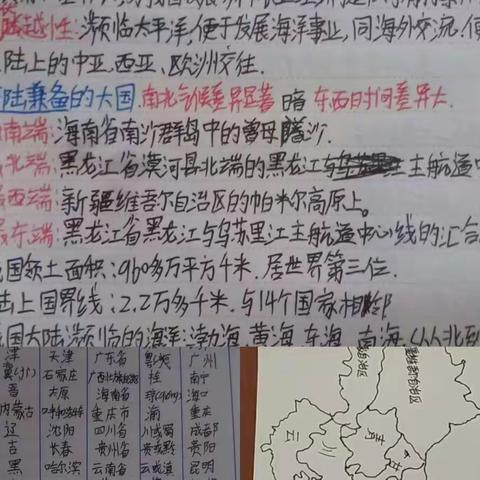 越性:濒临太平洋,便于发展海洋事业,同海外交流.便
陆上的中亚.西亚、欧洲交往.
陆兼备的大国.南北气候差异显著 暗 东西时间差异大.
南端:海南省南沙群岛中的曾母暗沙.
北端:黑龙江省漠河县北端的黑龙江与主航道中
最西端:新疆维吾尔自治区的帕米尔高原上。
最东端:黑龙江省黑龙江与乌苏里江主航道中心线的汇合
国领土面积:960多万平方千米.居世界第三位.
陆上国界线:2.2万多千米.与14个国家相邻
我国大陆濒临的海洋:渤海.黄海.东海.南海.(从北到
津 天津 广东省 粤 广州
冀 石家庄 广西壮族自治区 桂 南宁
晋 太原 海南省 琼 海口
内蒙古 呼和浩特 重庆市 渝 重庆
辽 沈阳 四川省 川或蜀 成都
吉 长春 贵州省 贵或黔 贵阳
黑 哈尔滨 云南省 云或滇 昆明
自治区
自治区
云
川
青